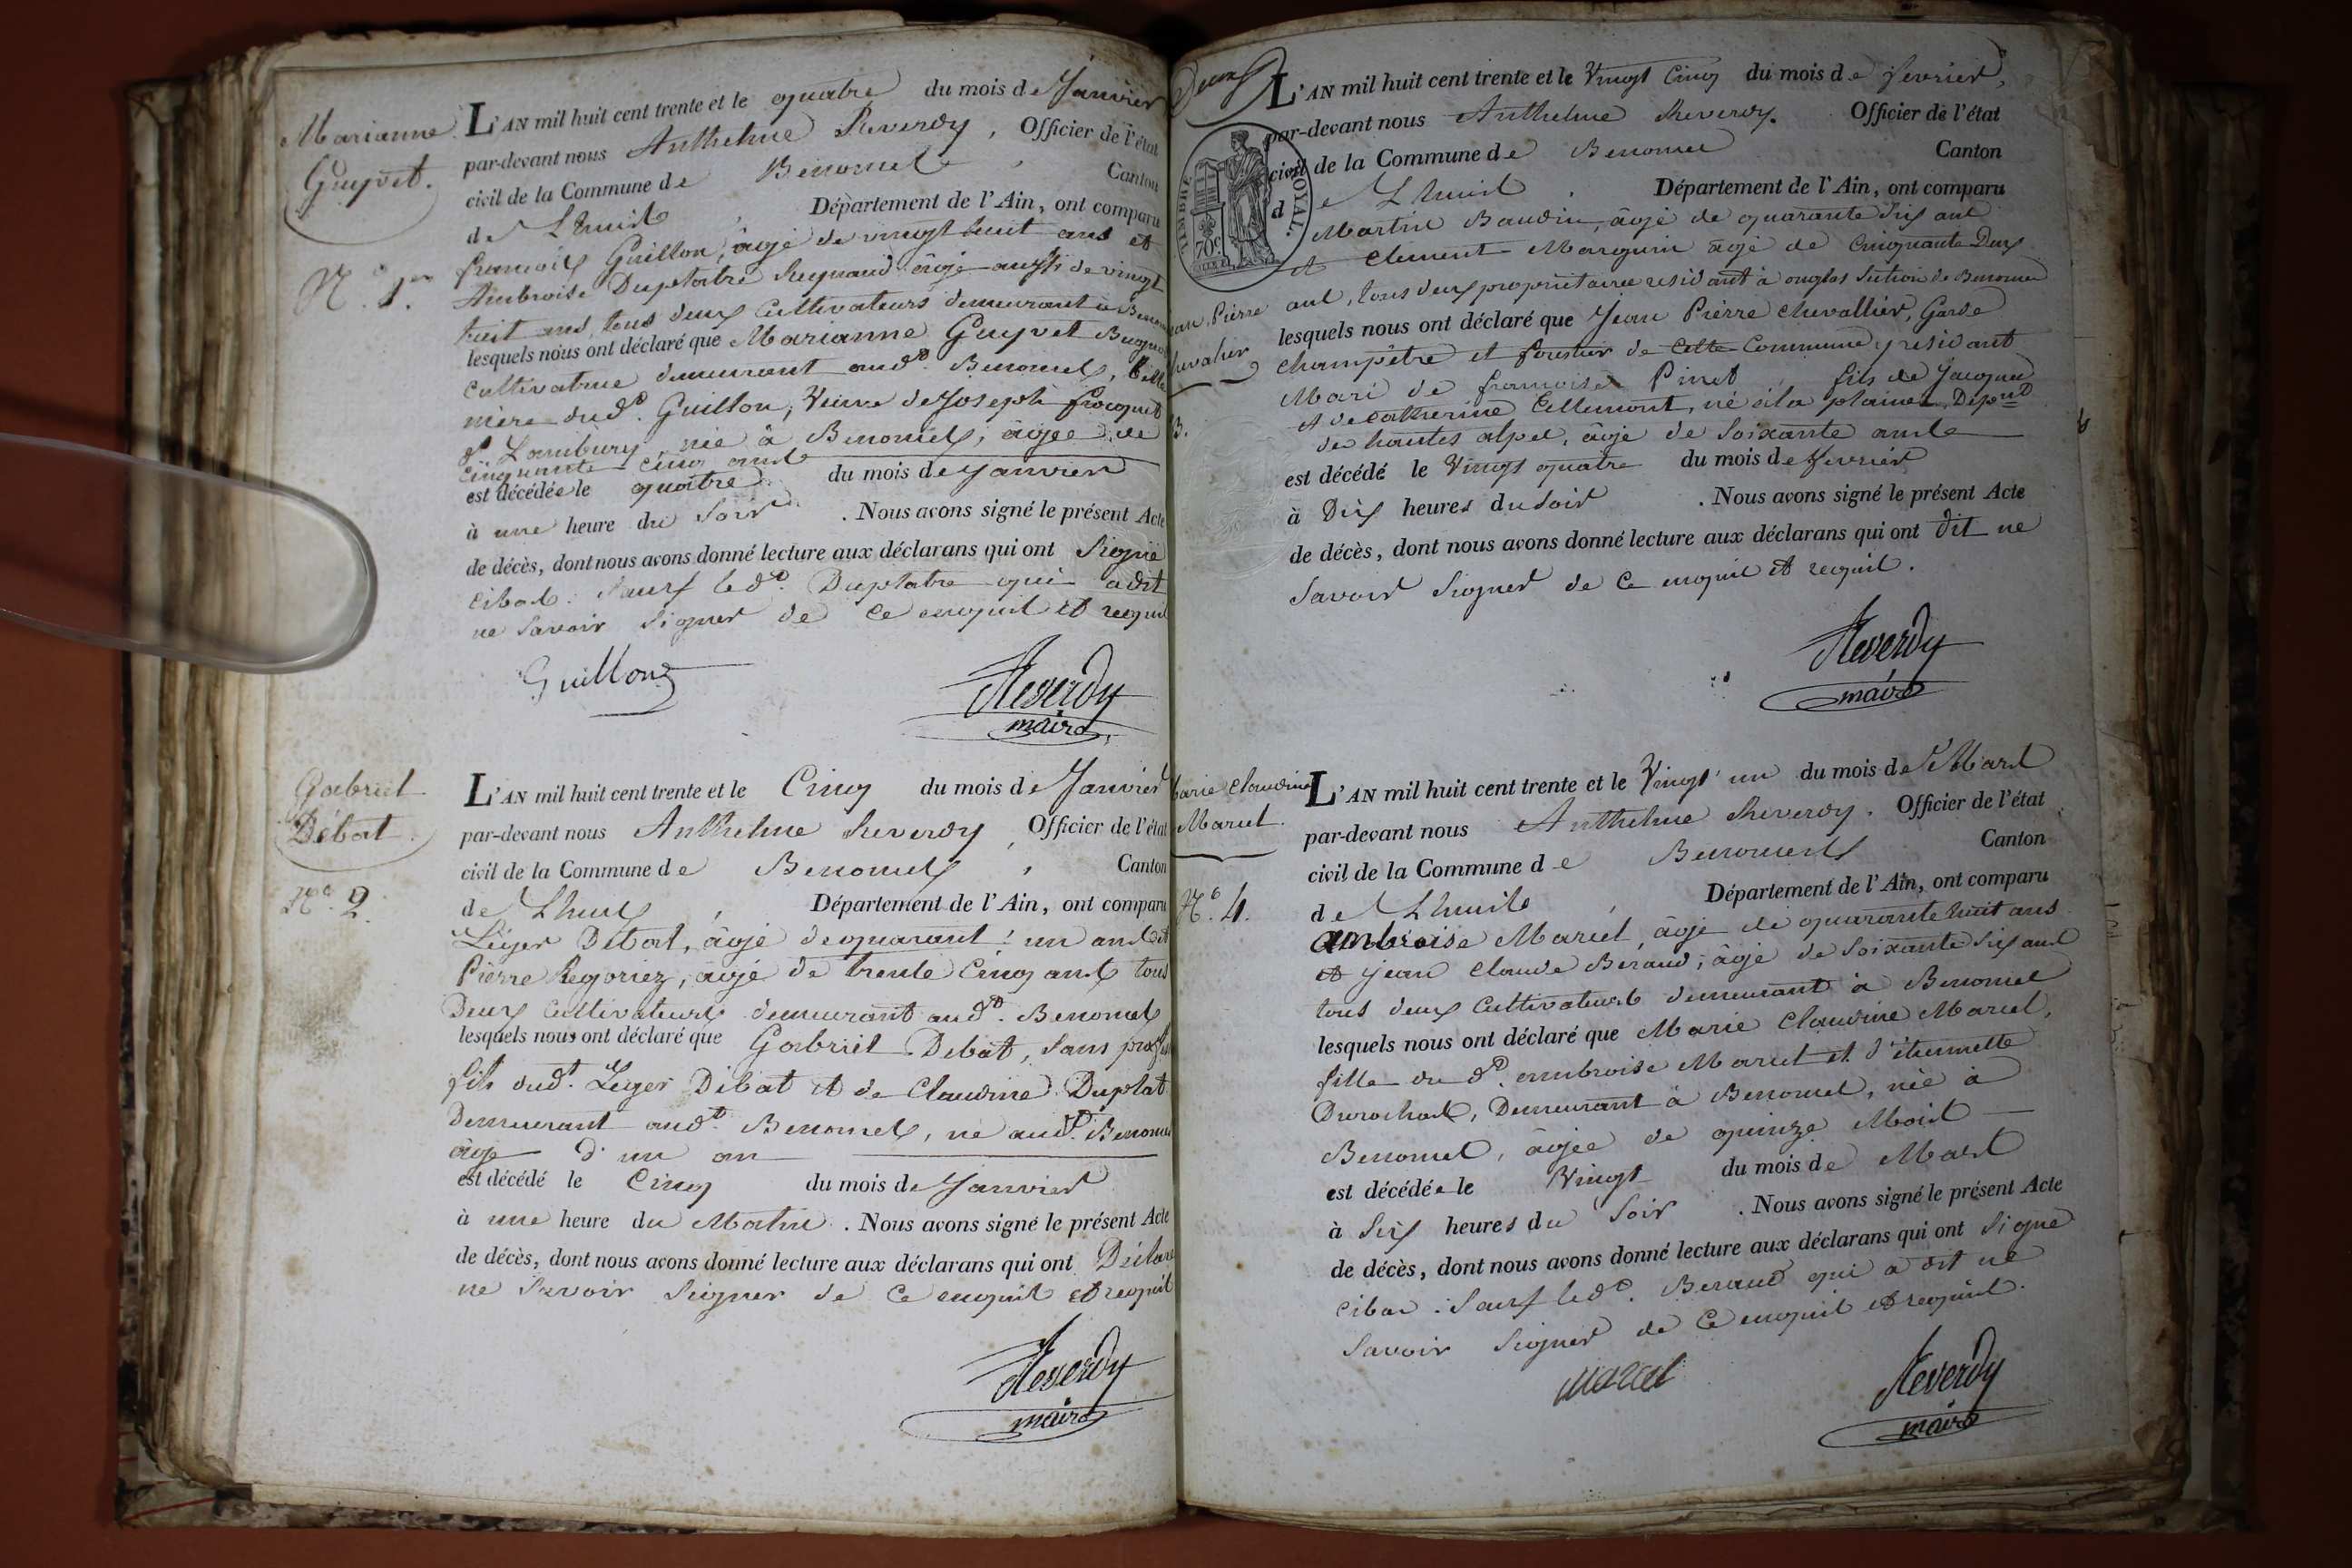 Marianne
Guyvet.
N.º 1.er
L'AN mil huit cent trente et le quatre du mois de Janvier
par-devant nous Anthelme Reverdy, Officier de l'état
civil de la Commune de Benonces, Canton
de Lhuis, Département de l'Ain, ont comparu
françois Guillon, âgé de vingt huit ans et
Ambroise Duplatre Reynaud âgé aussi de vingt
huit ans, tous deux Cultivateurs demeurant à
lesquels nous ont déclaré que Marianne Guyvet
Cultivatrice demeurant aud.t Benonces,
mère dud.t Guillon, Veuve de Joseph
née à Benonces, âgée de
Cinquante Cinq ans
est décédée le quatre du mois de Janvier
à une heure du Soir. Nous avons signé le présent Acte
de décès, dont nous avons donné lecture aux déclarans qui ont Signé
Sauf led.t Duplatre qui a dit
ne Savoir Signer de ce enquis et requis
Guillon
Reverdy
maire
Gabriel
Débat.
N.º 2.
L'AN mil huit cent trente et le Cinq du mois de Janvier
par-devant nous Anthelme Reverdy, Officier de l'état
civil de la Commune de Benonces, Canton
de Lhuis, Département de l'Ain, ont comparu
Léger Débat, âgé de quarant'un ans et
Pierre Regoriez, âgé de trente Cinq ans tous
Deux Cultivateurs demeurant aud.t Benonces
lesquels nous ont déclaré que Gabriel Debat, Sans
fils dud.t Léger Débat et de Claudine Duplat
Demeurant aud.t Benonces, né aud.t Benonces
âgé d'un an
est décédé le Cinq du mois de Janvier
à une heure du Matin. Nous avons signé le présent Acte
de décès, dont nous avons donné lecture aux déclarans qui ont Déclaré
ne Savoir Signer de ce enquis et requis
Reverdy
maire
Deux
TIMBRE ROYAL.
70c
L'AN mil huit cent trente et le Vingt Cinq du mois de fevrier,
par-devant nous Anthelme Reverdy. Officier de l'état
civil de la Commune de Benonces Canton
de Lhuis. Département de l'Ain, ont comparu
Martin Baudin, âgé de quarante Six ans
et Clement Marguin âgé de Cinquante Deux
ans, tous deux propriétaires residant à onglas Section de Benonces
lesquels nous ont déclaré que Jean Pierre Chevallier, Garde
Champêtre et forestier de Cette Commune y residant
Mari de françoise Pinet fils de Jacques
et de Catherine Cellemont, né à la plaine, Dép.nt
de hautes alpes, âgé de Soixante ans
est décédé le Vingt quatre du mois de fevrier
à Dix heures du Soir. Nous avons signé le présent Acte
de décès, dont nous avons donné lecture aux déclarans qui ont dit ne
Savoir Signer de ce enquis et requis.
Reverdy
maire
Marie Claudine
Marcel.
N.º 4.
L'AN mil huit cent trente et le Vingt un du mois de Mars
par-devant nous Anthelme Reverdy. Officier de l'état
civil de la Commune de Benonces Canton
de Lhuis, Département de l'Ain, ont comparu
ambroise Marcel, âgé de quarante huit ans
et Jean Claude Beraud, âgé de Soixante Six ans
tous deux Cultivateurs demeurant à Benonces
lesquels nous ont déclaré que Marie Claudine Marcel,
fille du d.t ambroise Marcel et d'étiennette
Durochat, Demeurant à Benonces, née à
Benonces, âgée de quinze Mois
est décédée le Vingt du mois de Mars
à Six heures du Soir. Nous avons signé le présent Acte
de décès, dont nous avons donné lecture aux déclarans qui ont Signé
Sauf led.t Beraud qui a dit ne
Savoir Signer de ce enquis et requis.
marcel
Reverdy
maire